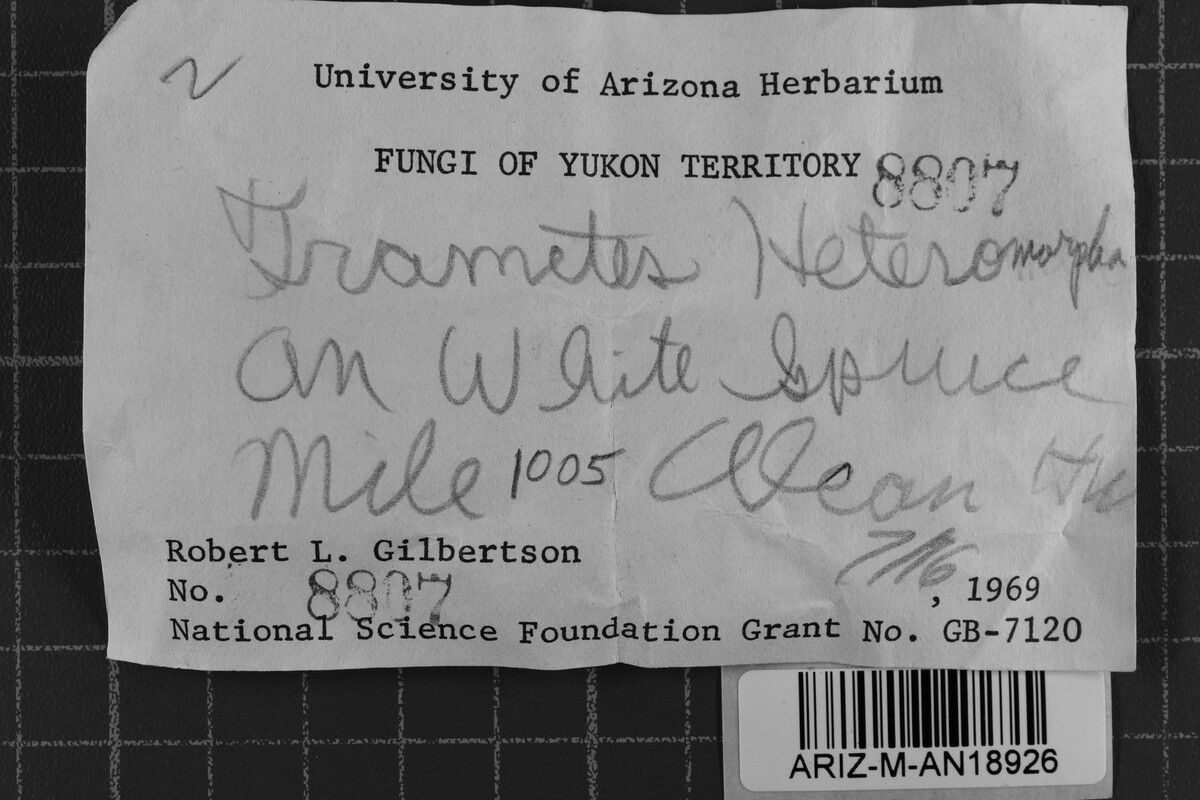 University of Arizona Herbarium
FUNGI OF YUKON TERRITORY 8807
Trametes Heteromorpha
On White Spruce
Mile 1005 Alcan Hw
7/16, 1969
Robert L. Gilbertson
No. 8807
National Science Foundation Grant No. GB-7120
ARIZ-M-AN18926